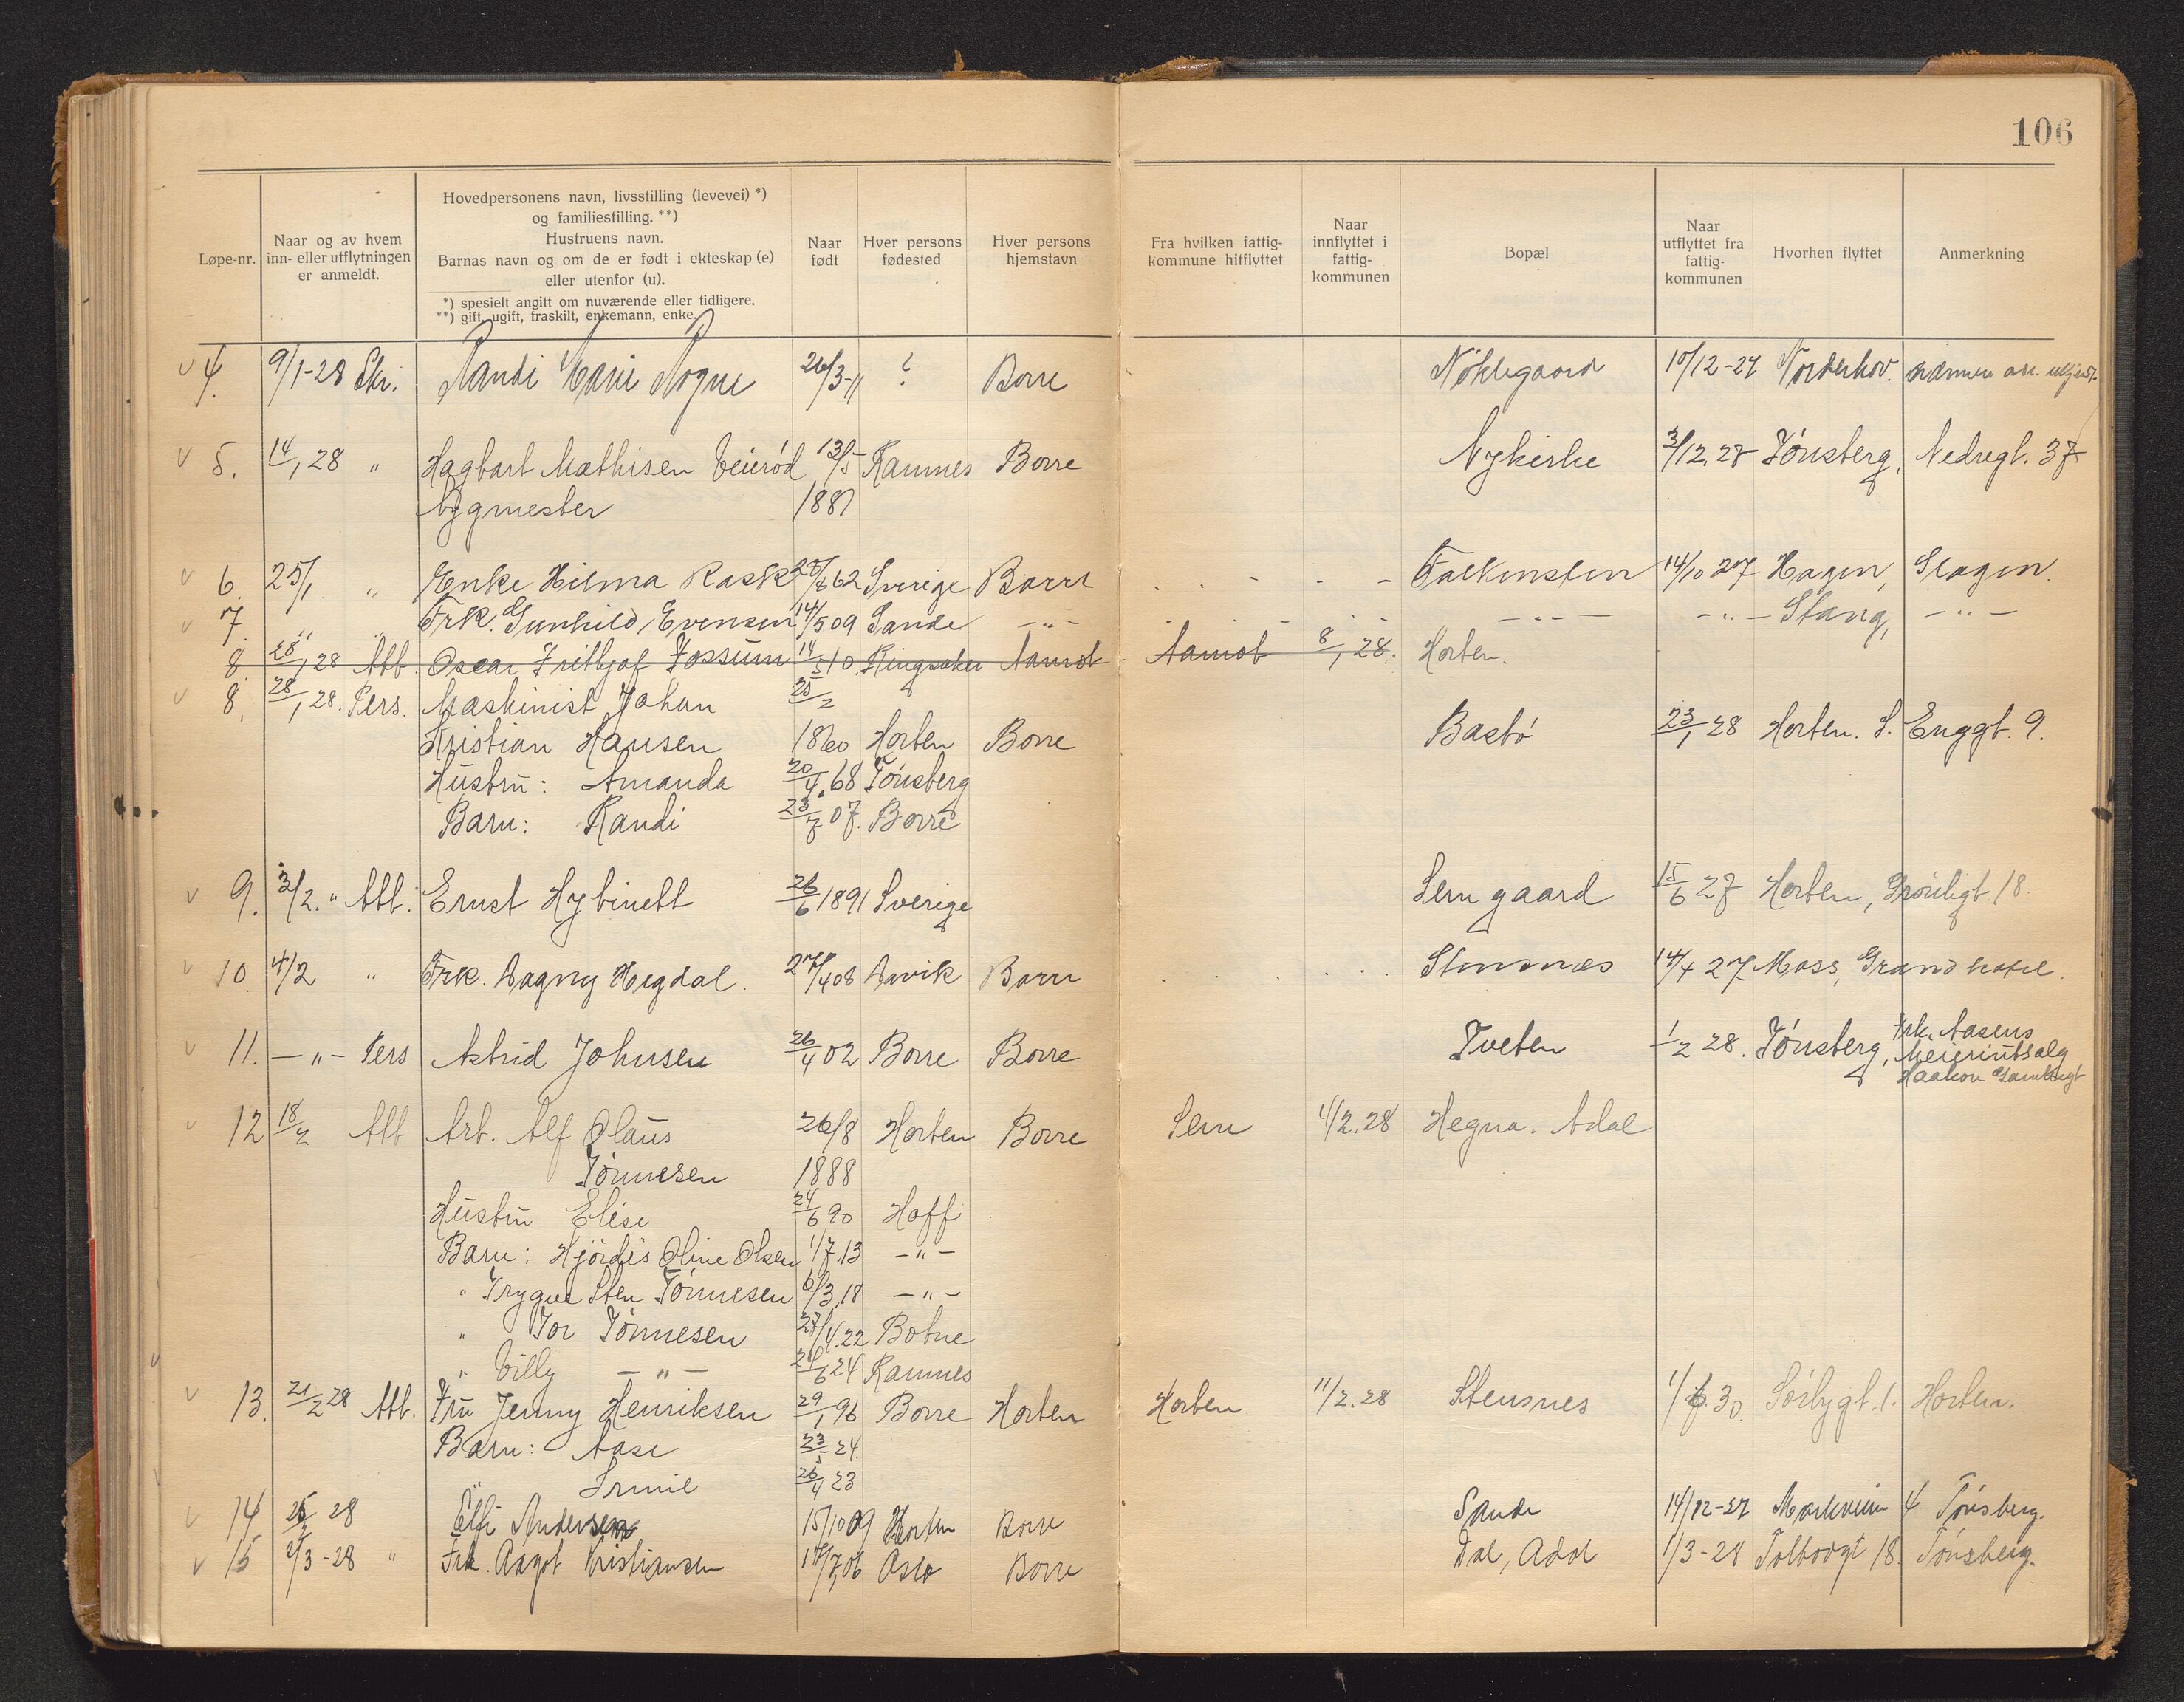 106
Løpe-nr.
Naar og av hvem
inn- eller utflytningen
er anmeldt.
Hovedpersonens navn, livsstilling (levevei) *)
og familiestilling. **)
Hustruens navn.
Barnas navn og om de er født i ekteskap (e)
eller utenfor (u).
*) spesielt angitt om nuværende eller tidligere.
**) gift, ugift, fraskilt, enkemann, enke.
Naar
født
Hver persons
fødested
Hver persons
hjemstavn
Fra hvilken fattig-
kommune hitflyttet
Naar
innflyttet i
fattig-
kommunen
Bopæl
Naar
utflyttet fra
fattig-
kommunen
Hvorhen flyttet
Anmerkning
4. 9/1-28 Skr. Randi Marie Rogne 26/3-11 ? Borre Nøklegaard 10/12-27 Norderhov.
5. 14/1 28 " Hagbart Mathisen Veierød 13/5 Ramnes Borre Nykirke 3/12.27 Tønsberg, Nedregt. 37
Bygmester 1887
6. 25/1 " Enke Hilma Rask 62 Sverige Borre Falkensten 14/10 27 Hagen, Slagen.
7 " " Frk. Gunhild Evensen 14/5 09 Sande -"- -"- -"- Stang, -"-
8. 28/1 28 Abb. Oscar Frithjof Fossum 14/5 10. Ringsaker Aamot Aamot 8/1 28. Horten.
8. 28/1 28. Pers. Maskinist Johan 25/2
Kristian Hansen 1860 Horten Borre Bastø 23/1 28 Horten. S. Enggt. 9.
Hustru: Amanda 20/4.68 Tønsberg
Barn: Randi 23/7 07. Borre
9. 3/2. " Abb. Ernst Hybinett 26/6 1891 Sverige Sem gaard 15/6 27 Horten, Grønligt. 18.
10 4/2 " Frk. Dagny Hegdal. 27/4 08 Borre Stensnæs 14/4 27 Moss, Grand hotel.
11. -"- Pers Astrid Johnsen 26/4 02 Borre Borre Tveten 1/2 28. Tønsberg, Frk. Aasens
Meieriutsalg
Haakon Gamlesgt
12 18/2 Abb Arb. Alf Olaus 26/8 Horten Borre Sem 1/2.28 Hegna. Adal
Tønnesen 1888
Hustru Elise 24/6 90 Hoff
Barn: Hjørdis Oline Olsen 1/7.13 -"-
" Trygve Sten Tønnesen 6/3.18 -"-
" Tor Tønnesen 27/4.22 Botne
" Villy -"- 24/6 24 Ramnes
13. 21/2 28 Abb. Fru Jenny Henriksen 29/1 96 Borre Horten Horten 11/2.28 Stensnes 1/6.30. Sørbygt. 1. Horten.
Barn: Aase 23/5 24.
" Irmil 26/4 23
14 28 Elfi Andersen 15/10 09 Horten Borre Sande 14/12-27 Markveien 4 Tønsberg.
15 2/3-28 " Frk. Aagot Kristiansen 17/7.06 Oslo Borre Dal, Adal 1/3-28 Tolbodgt 18. Tønsberg.